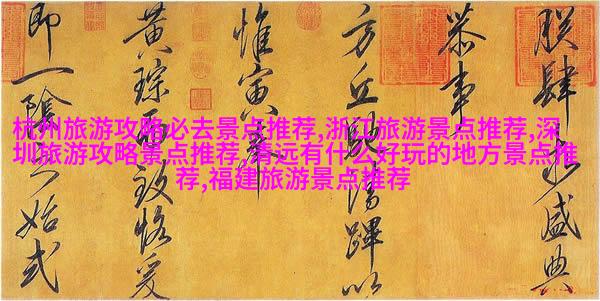 杭州旅游攻略必去景点推荐,浙江旅游景点推荐,深
圳旅游攻略景点推荐,清远有什么好玩的地方景点推
荐,福建旅游景点推荐
朕肆盛典
恭事
方丘清蹕以
惟寅
黄琮而致恪爰
即一陰之始式